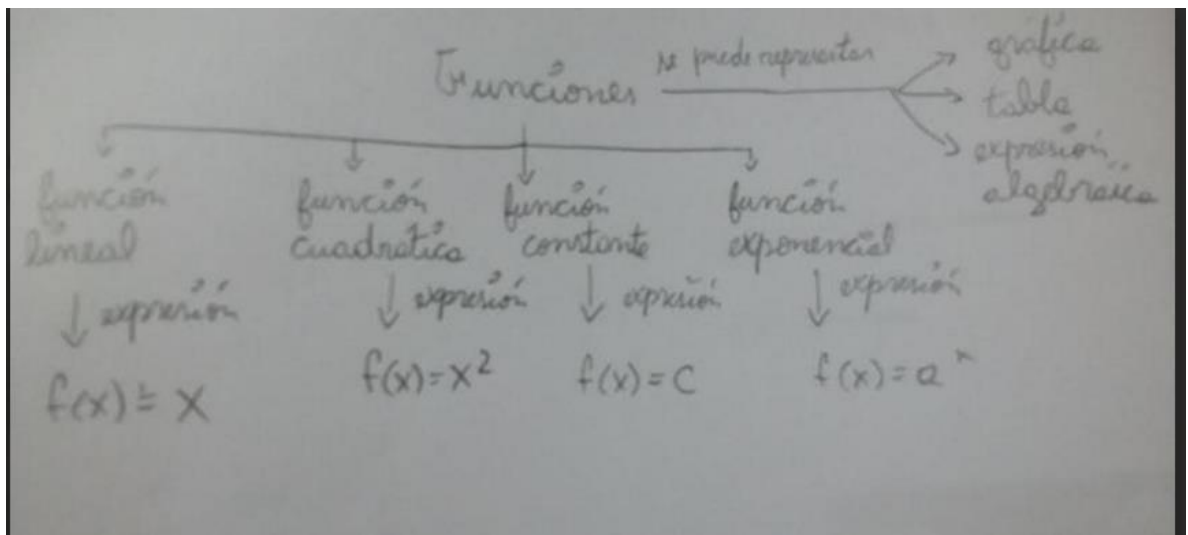 Funciones
se puede representar
gráfica
tabla
expresión
algebraica
función
lineal
expresión
f(x) = x
función
cuadrática
expresión
f(x) = x²
función
constante
expresión
f(x) = c
función
exponencial
expresión
f(x) = aˣ